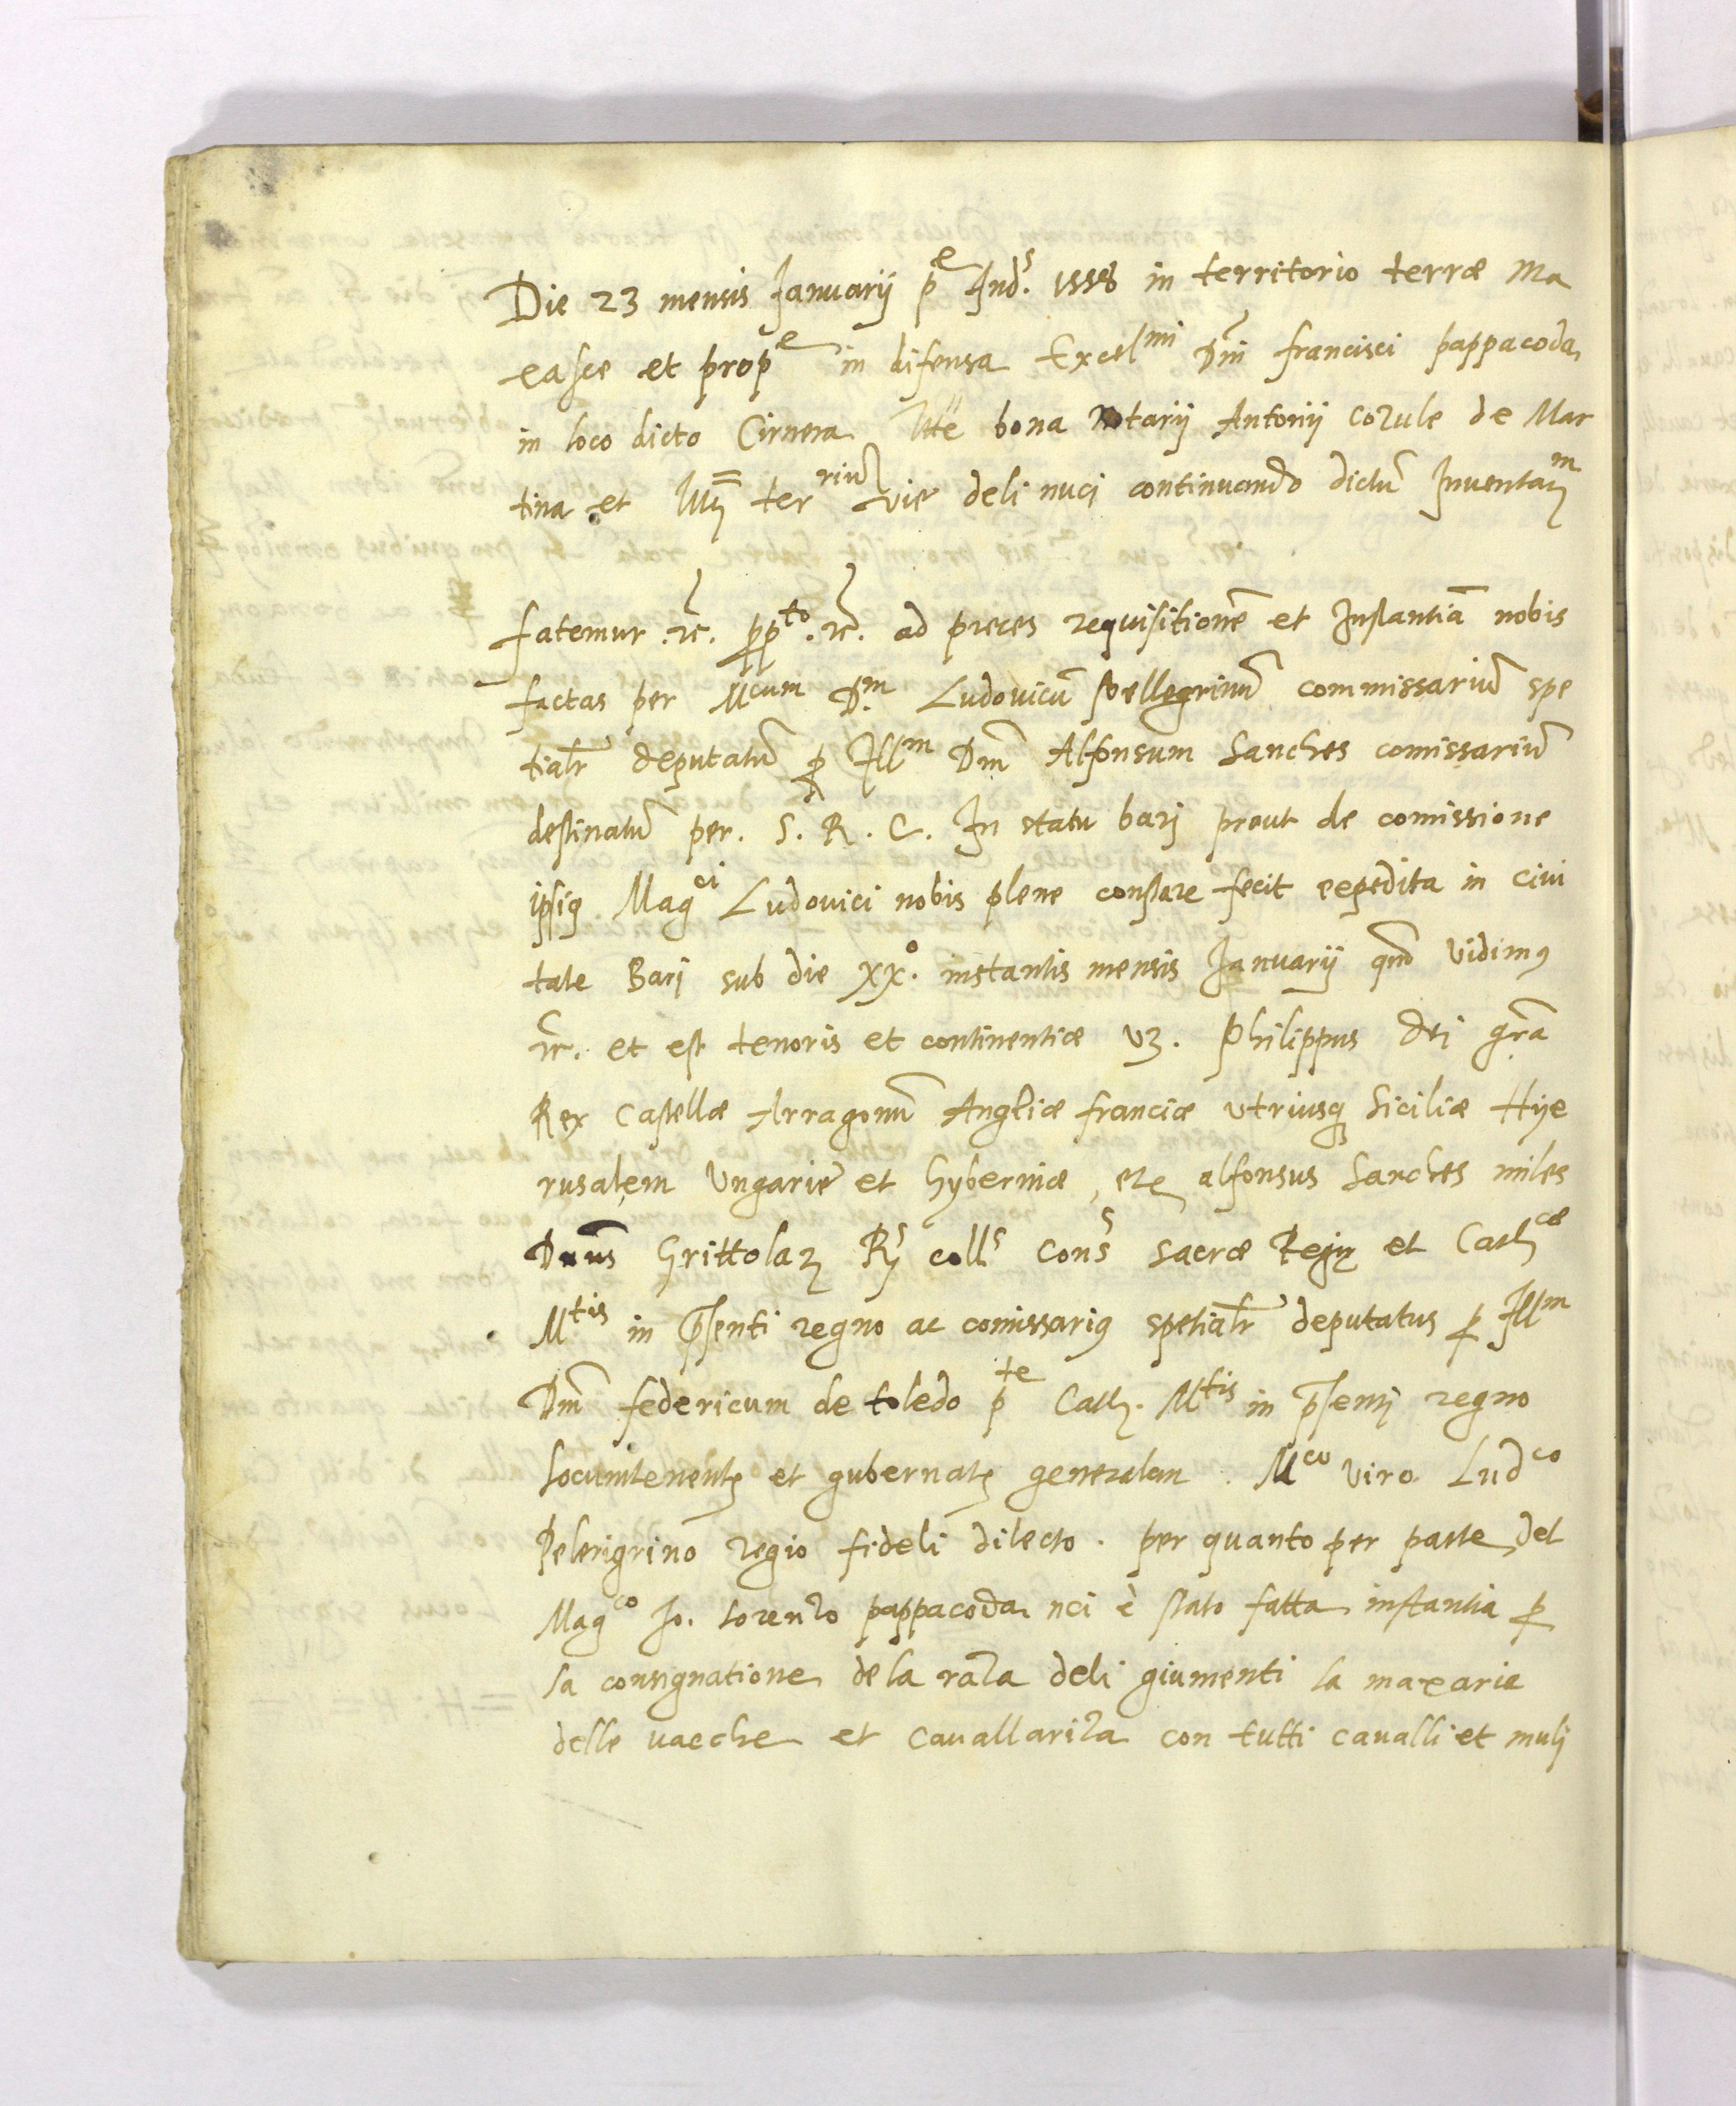 Die 23 mensis Januarij p^e Ind^s. 1558 in territorio terræ Ma
casce et prop^e in difensa Excel^mi Dn̄i francisci pappacoda
in loco dicto Cirnera bona Notarij Antonij Cozule de Mar
tina et ter^rium vie deli nuci continuando dictū Inventa^m
fatemur .rc̄. pp^to .rc̄. ad preces requisitionē et Instantiā nobis
factas per M^cum D^m. Ludovicū Pellegrinū commissariū spe
tialr̄ deputatū p Ill^m Dm̄ Alfonsum Sanches comissariū
destinatū per. S. R. C. In statu barj prout de comissione
ipsiꝯ Mag^ci Ludovici nobis plene constare fecit expedita in civi
tate Barj sub die xx°. instantis mensis Januarij qm̄ vidimꝯ
rc̄. et est tenoris et continentiæ vz. Philippus dei gr̄a
Rex Castellæ Arragonū Angliæ franciæ vtriusq Siciliæ Hye
rusalem Vngarie et Hyberniæ, etc alfonsus Sanches miles
Dn̄us Grittolaꝝ R^s coll^s cons^s Sacræ Regię et Cath^cæ
M^tis in p̄senti regno ac comissariꝯ spetialr̄ deputatus p Ill^m
Dm̄ federicum de toledo p^te Cath. M^tis in p̄senti regno
locumtenentē et gubernatē generalem. M^co viro Lud^co
Pelerigrino regio fideli dilecto. per quanto per parte del
Mag^co Jo. Lorenzo pappacoda nci è stato fatta instantia p
la consignatione de la razza deli giumenti la maxarie
delle vacche et Cavallariza con tutti cavalli et mulj